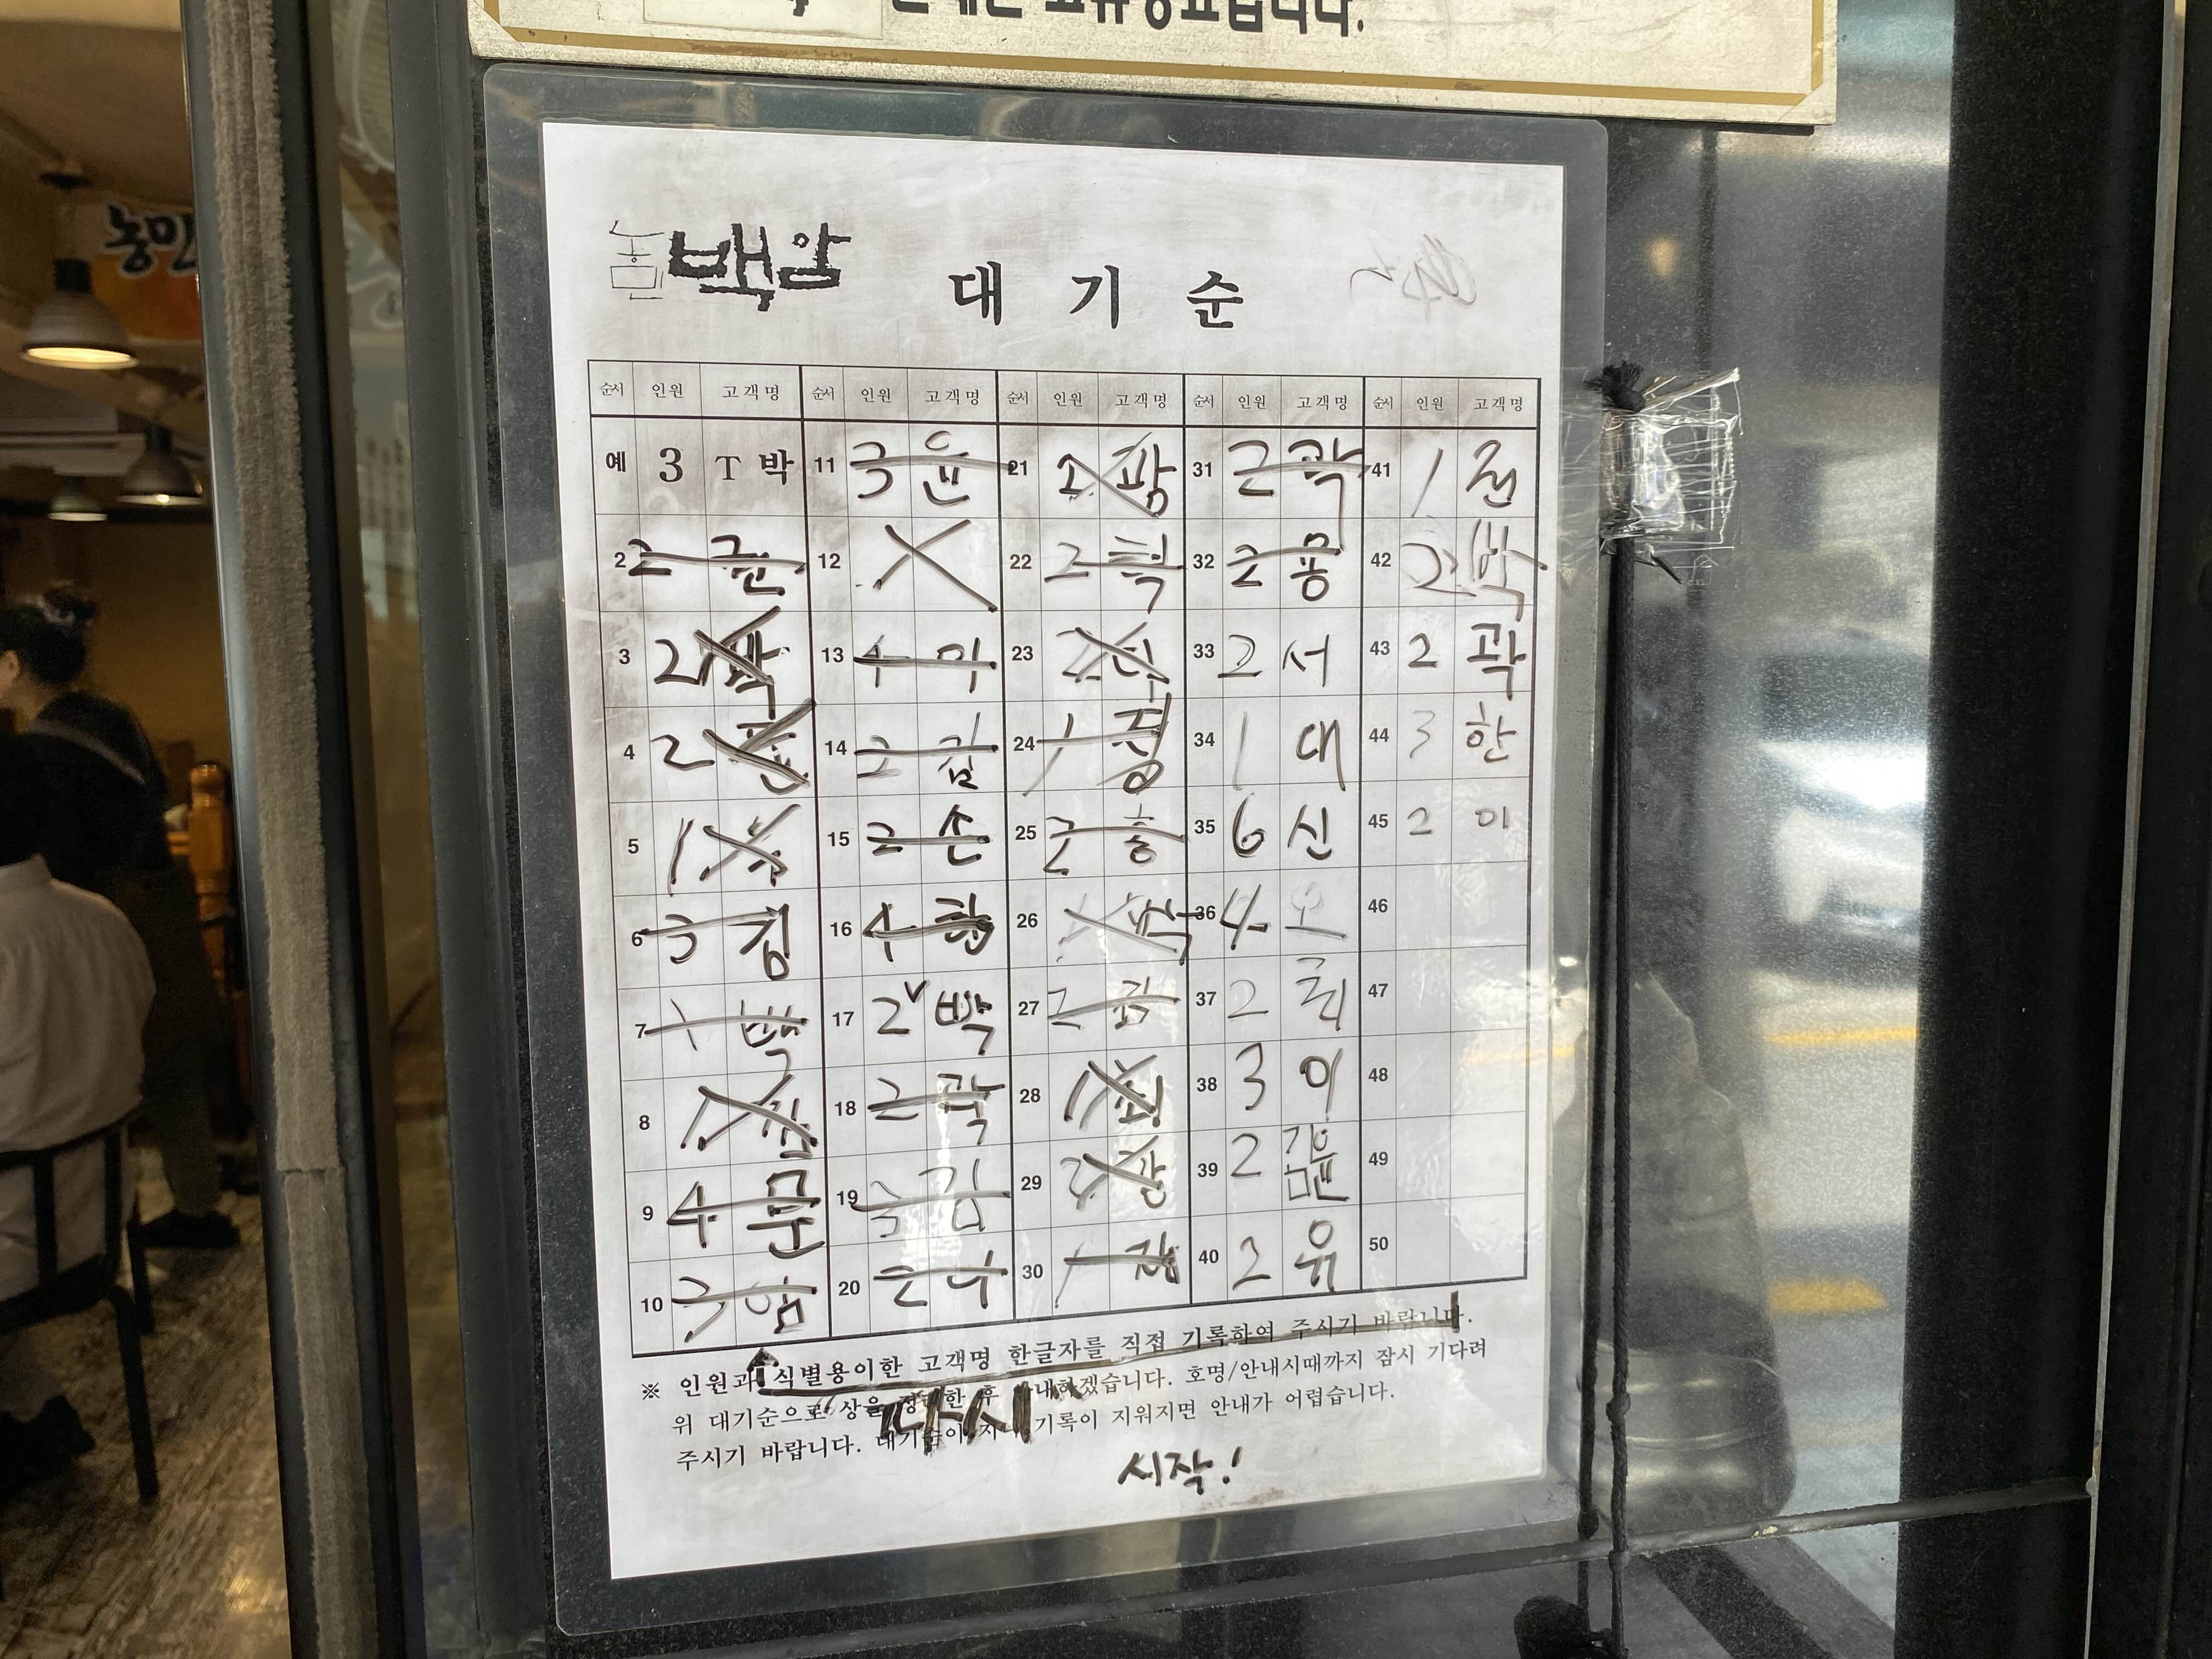 농민
농민백암
대 기 순
순서 인원 고객명 순서 인원 고객명 순서 인원 고객명 순서 인원 고객명 순서 인원 고객명
예 3 T 박 11 3 윤 21 2 팡 31 2 곽 41 1 전
2 2 12 22 2 32 2 용 42 2 박
3 2 박 13 4 이 23 2 33 2 서 43 2 곽
4 2 윤 14 2 김 24 1 정 34 1 대 44 3 한
5 1 15 2 손 25 2 홍 35 6 신 45 2 이
6 3 김 16 4 한 26 1 박 36 4 오 46
7 1 백 17 2 박 27 2 김 37 2 최 47
8 1 김 18 2 곽 28 1 최 38 3 이 48
9 4 문 19 3 김 29 2 장 39 2 김윤 49
10 3 임 20 2 나 30 1 40 2 유 50
※ 인원과 식별용이한 고객명 한글자를 직접 기록하여 주시기 바랍니다.
위 대기순으로 상을 한 후 안내하겠습니다. 호명/안내시때까지 잠시 기다려
다시
주시기 바랍니다. 대기순이 기록이 지워지면 안내가 어렵습니다.
시작!